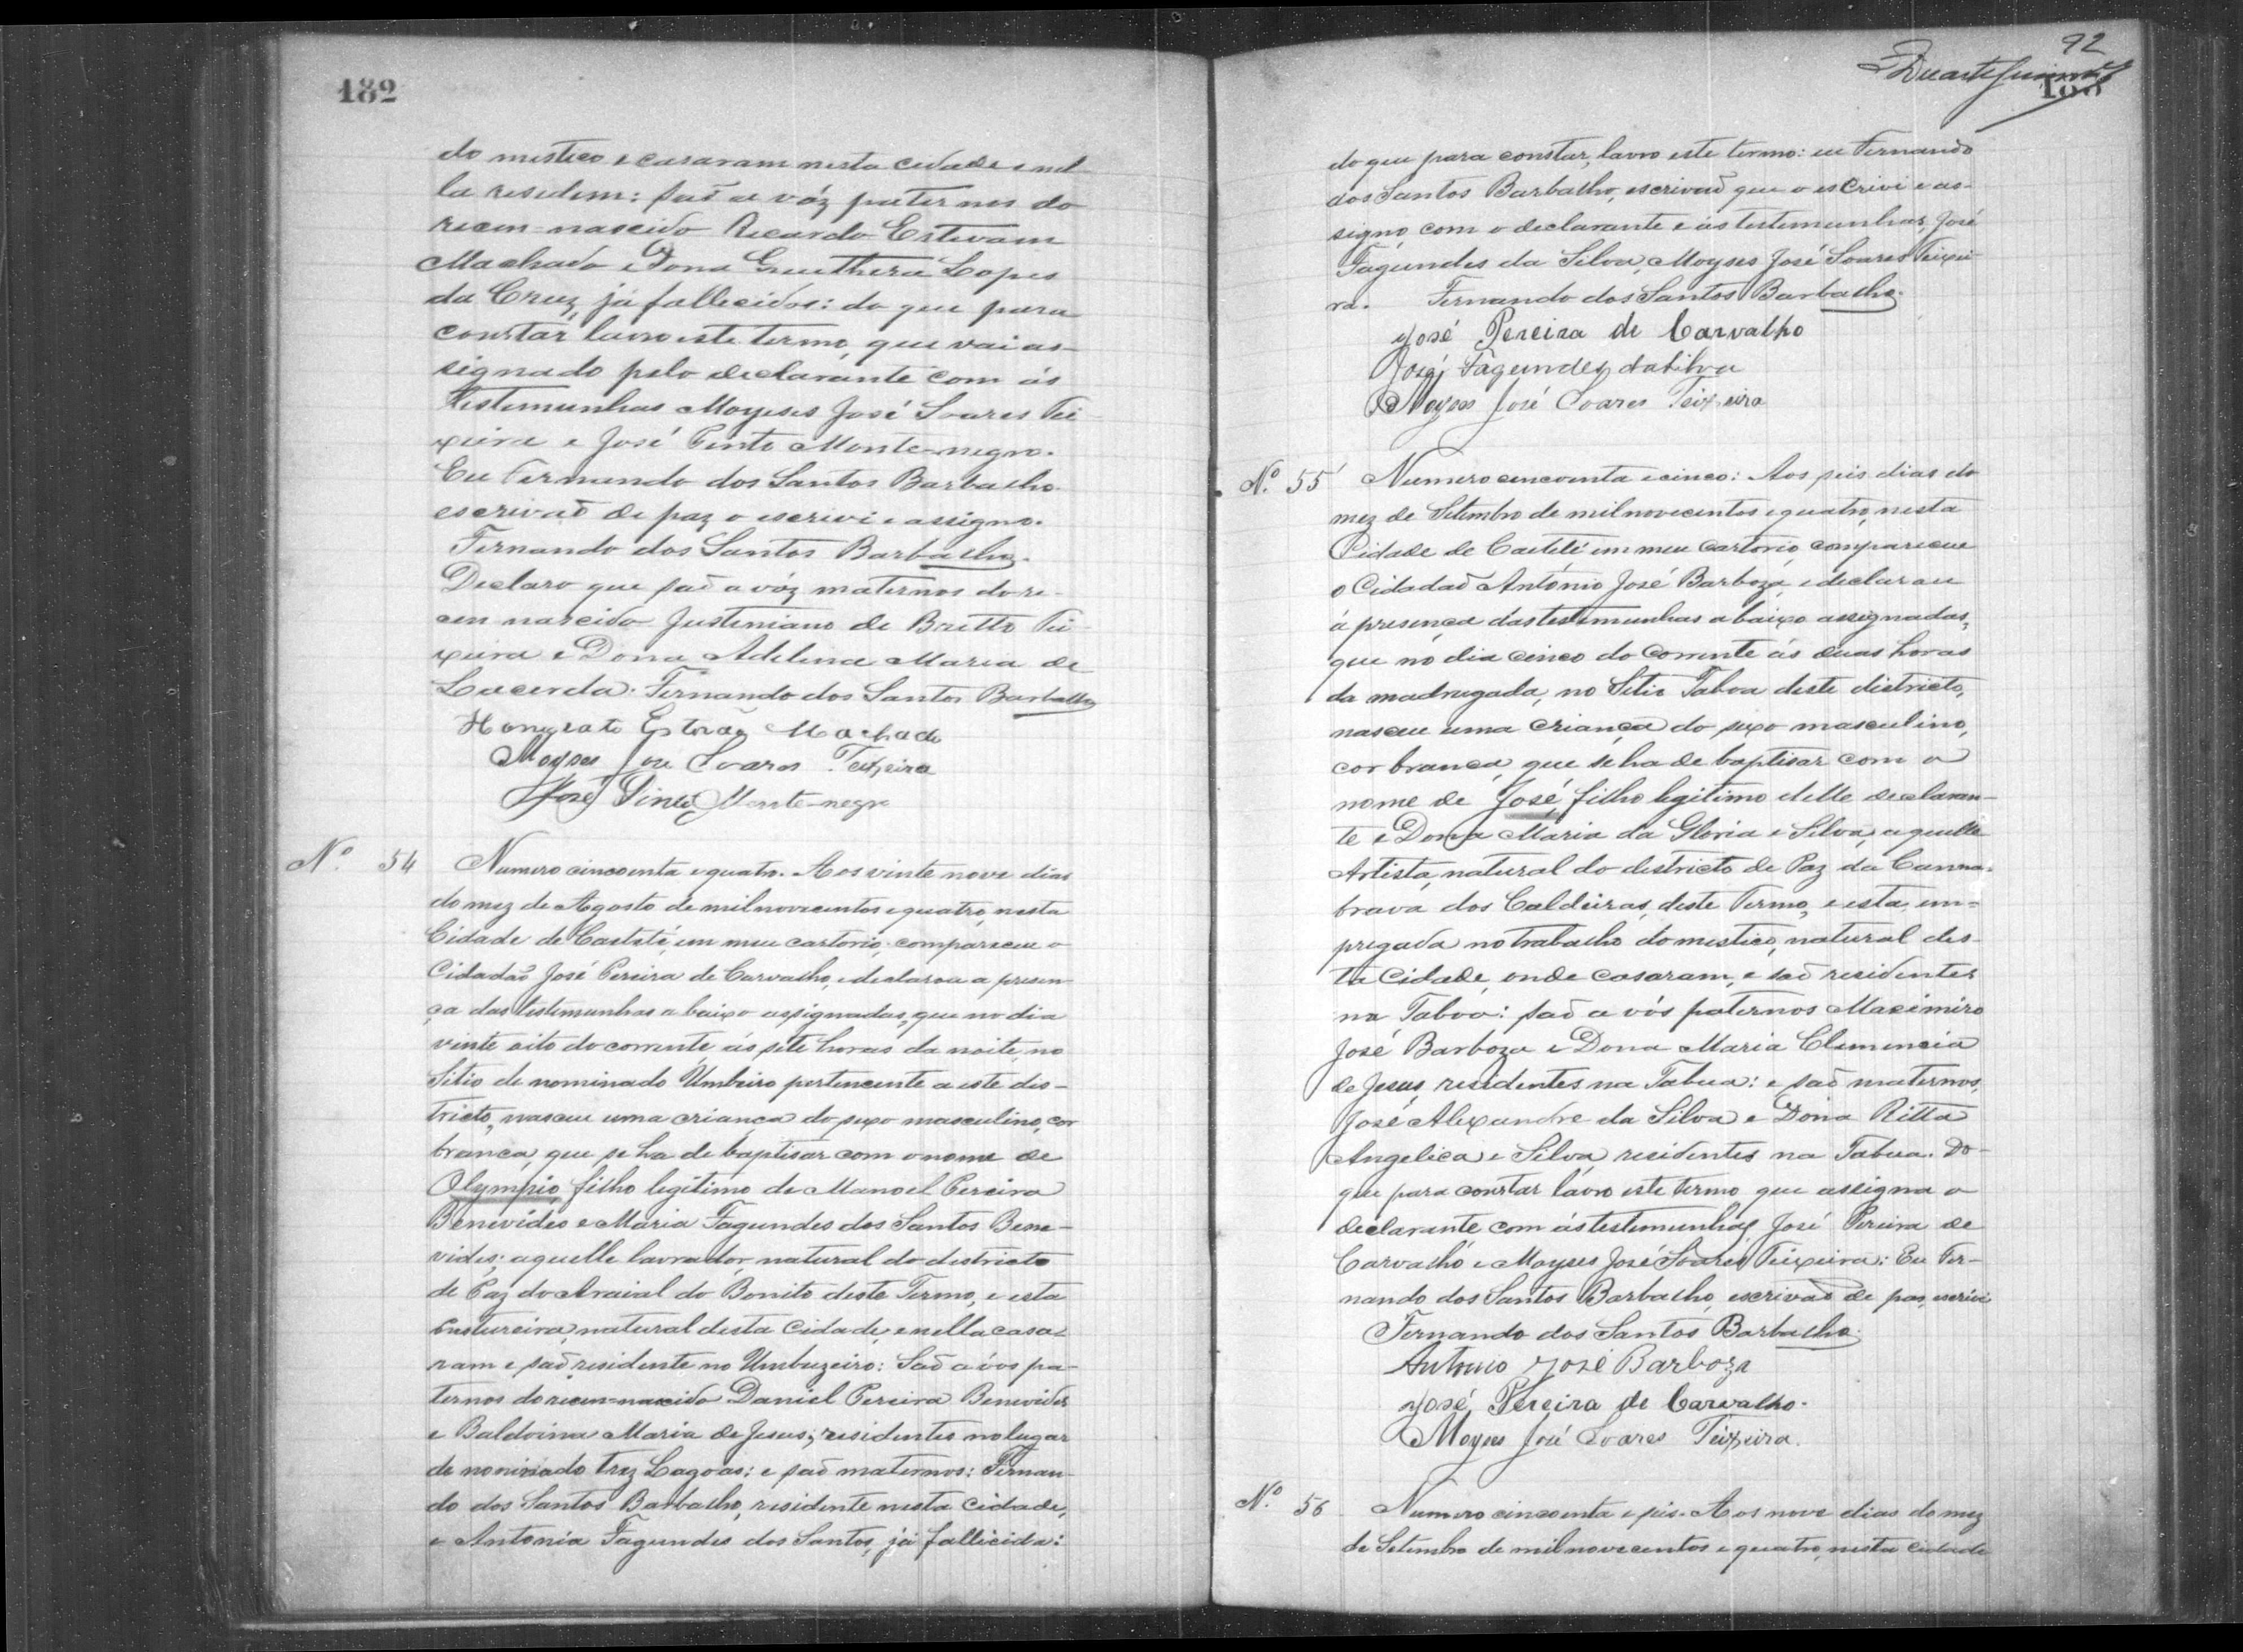 182
do mestico e casaram nesta cidade e nel-
la residem: saõ avóz paternos do
recem-nascido Ricardo Estevam
Machado e Dona Lopes
da Cruz, já fallecidos: do que para
constar lavro este termo, que vai as-
signado pelo declarante com ás
testimunhas Moyses José Soares Tei-
xeira e José Pinto Monte-negro.
Eu Fernando dos Santos Barbalho
escrivaõ de paz o escrivi e assigno.
Fernando dos Santos Barbalho.
Declaro que saõ avóz maternos do re-
cem nascido Justiniano de Britto Tei-
xeira e Dona Adelina Maria de
Lacerda. Fernando dos Santos Barbalho
Honorato Estevão Machado
Moyses José Soares Teixeira
José Pinto Monte-negro
Nº 54 Numero cincoenta e quatro. Aos vinte nove dias
do mez de Agosto de mil novecentos e quatro, nesta
Cidade de Caeteté, em meu cartorio, compareceu o
Cidadaõ José Pereira de Carvalho, e declarou a presen-
ça das testimunhas abaixo assignadas, que no dia
vinte oito do corrente ás sete horas da noite, no
Sitio de nominado Umbuzeiro pertencente a este dis-
tricto, nasceu uma criança do sexo masculino, cor
branca, que se ha de baptisar com o nome de
Olympio, filho legitimo de Manoel Pereira
Benevides e Maria Fagundes dos Santos Bene-
vides; aquelle lavrador, natural do districto
de Paz do Arraial do Bonito deste Termo, e esta
Custureira, natural desta Cidade, e nella casa-
ram e saõ residente no Umbuzeiro: Saõ avos pa-
ternos do recem-nascido Daniel Pereira Benevides
e Baldoina Maria de Jesus, residentes no lugar
de nominado Trez Lagoas: e saõ maternos: Fernan-
do dos Santos Barbalho, residente nesta Cidade,
e Antonia Fagundes dos Santos, já fallicida:
92
Duarte
183
do que para constar, lavro este termo: eu Fernando
dos Santos Barbalho, escrivaõ que o escrivi e as-
signo com o declarante e ás testimunhas, José
Fagundes da Silva, Moyses José Soares Teixei-
ra. Fernando dos Santos Barbalho.
José Pereira de Carvalho
José Fagundes da Silva
Moyses José Soares Teixeira
Nº 55 Numero cincoenta e cinco: Aos seis dias do
mez de Setembro de mil novecentos e quatro, nesta
Cidade de Caeteté em meu cartorio, compareceu
o Cidadaõ Antonio José Barboza, e declarou
á presença das testimunhas abaixo assignadas,
que no dia cinco do corrente ás duas horas
da madrugada, no Sitio Taboa deste districto,
nasceu uma criança do sexo masculino,
cor branca, que se ha de baptisar com o
nome de José, filho legitimo delle declaran-
te e Dona Maria da Gloria e Silva, aquelle
Artista, natural do districto de Paz da Canna-
brava dos Caldeiras, deste Termo, e esta, em-
pregada no trabalho domestico, natural des-
ta Cidade, onde casaram, e saõ residentes
na Taboa: saõ avós paternos Maximiro
José Barboza e Dona Maria Clemencia
de Jesus, residentes na Tabua: e saõ maternos,
José Alexandre da Silva e Dona Ritta
Angelica e Silva residentes na Tabua. Do
que para constar lavro este termo que assigna o
declarante com ás testimunhas José Pereira de
Carvalho e Moyses José Soares Teixeira: Eu Fer-
nando dos Santos Barbalho, escrivaõ de paz, escrivi
Fernando dos Santos Barbalho.
Antonio José Barboza
José Pereira de Carvalho.
Moyses José Soares Teixeira.
Nº 56 Numero cincoenta e seis. Aos nove dias do mez
de Setembro de mil novecentos e quatro, nesta cidade